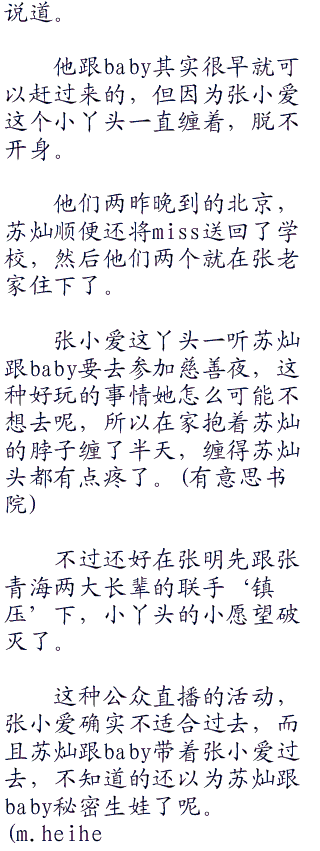 说道。
他跟baby其实很早就可
以赶过来的，但因为张小爱
这个小丫头一直缠着，脱不
开身。
他们两昨晚到的北京，
苏灿顺便还将miss送回了学
校，然后他们两个就在张老
家住下了。
张小爱这丫头一听苏灿
跟baby要去参加慈善夜，这
种好玩的事情她怎么可能不
想去呢，所以在家抱着苏灿
的脖子缠了半天，缠得苏灿
头都有点疼了。(有意思书
院)
不过还好在张明先跟张
青海两大长辈的联手‘镇
压’下，小丫头的小愿望破
灭了。
这种公众直播的活动，
张小爱确实不适合过去，而
且苏灿跟baby带着张小爱过
去，不知道的还以为苏灿跟
baby秘密生娃了呢。
(m.heihe